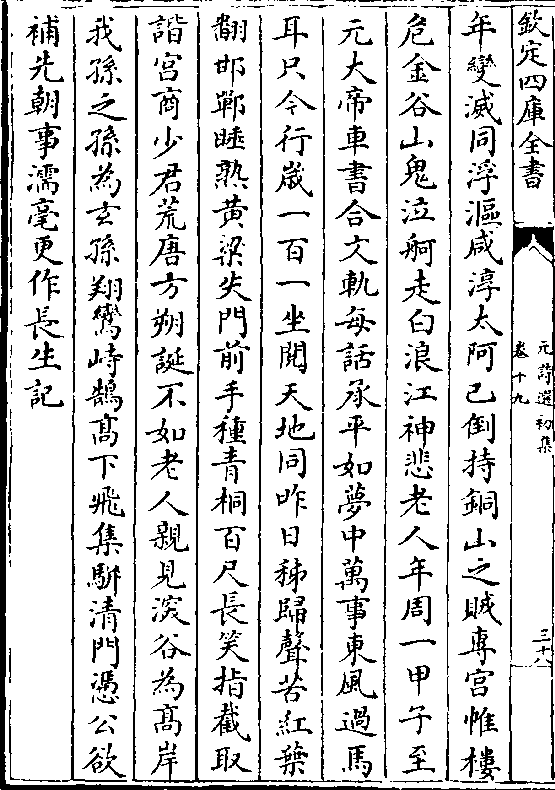 欽定四庫全書
元詩選初集
卷十九
三十八
年變滅同浮漚咸淳太阿已倒持銅山之賊專宮帷樓
危金谷山鬼泣舸走白浪江神悲老人年周一甲子至
元大帝車書合文軌每話承平如夢中萬事東風過馬
耳只今行歲一百一坐閱天地同昨日秭歸聲苦紅葉
翻邯鄲睡熟黄粱失門前手種青桐百尺長笑指截取
諧宮商少君荒唐方朔誕不如老人親見深谷為髙岸
我孫之孫為玄孫翔鸞峙鵠髙下飛集駢清門憑公欲
補先朝事濡毫更作長生記